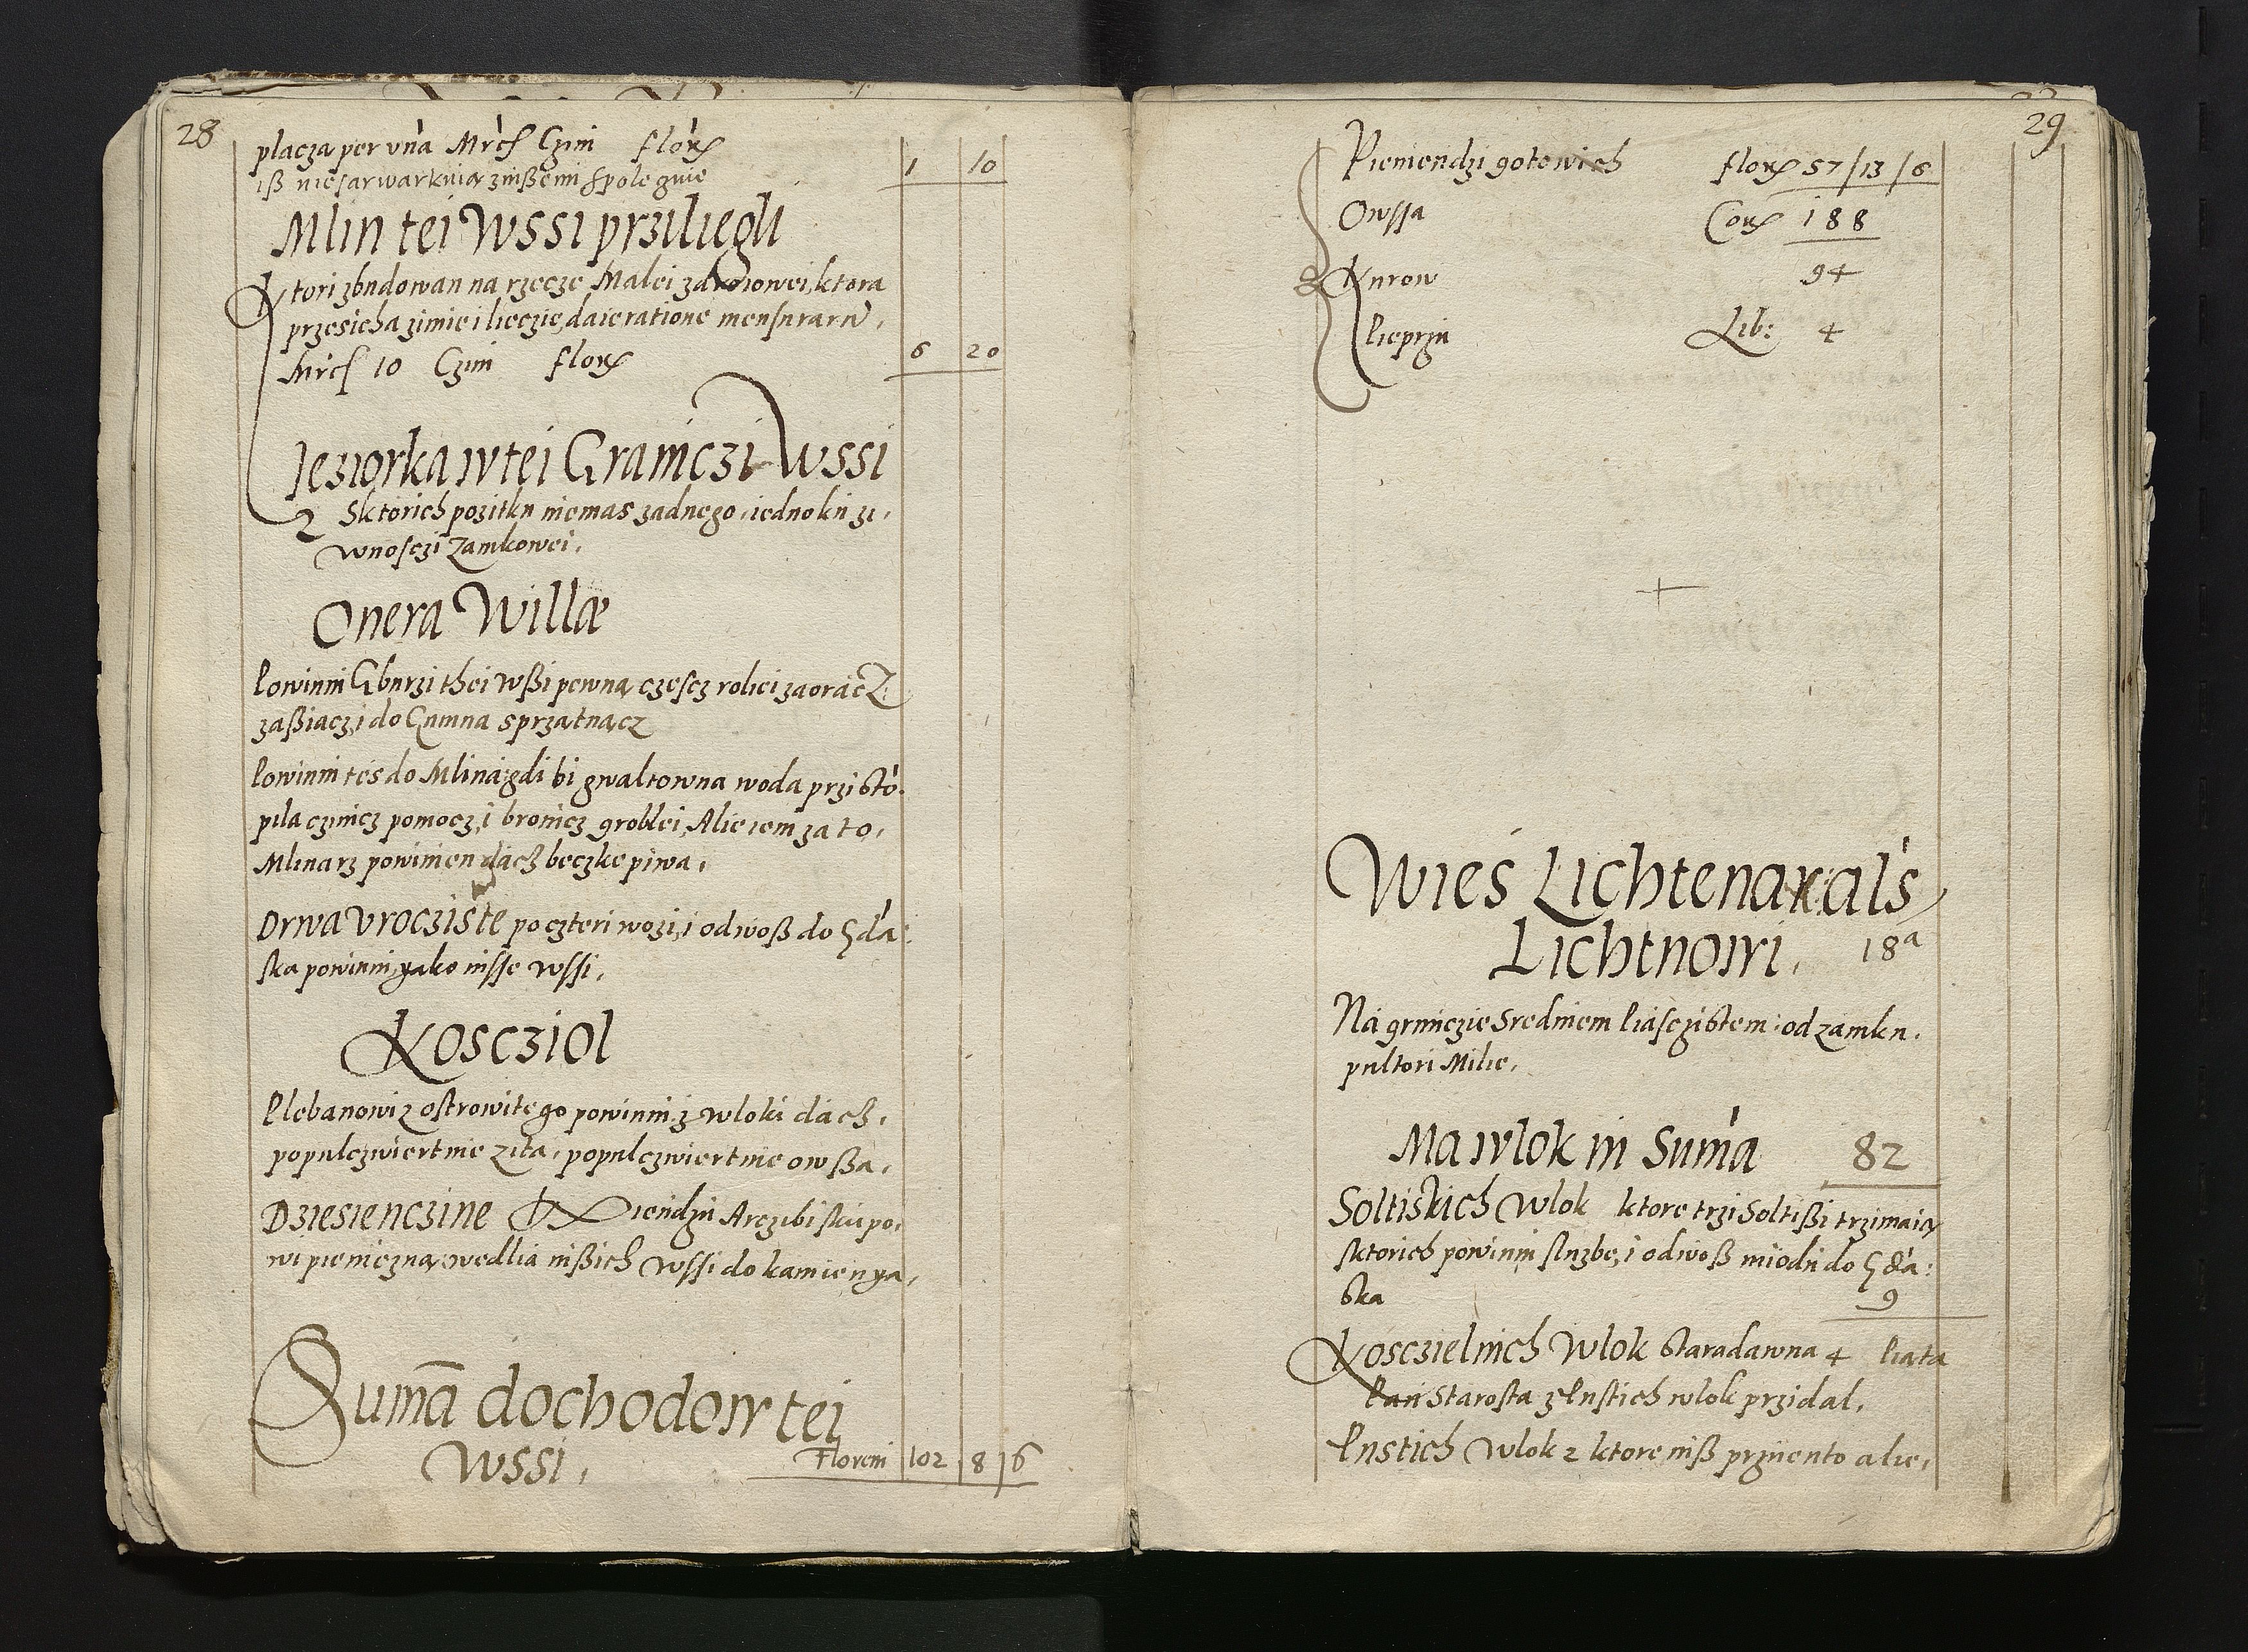 28
placzą per vná Mrćs Czini floŕ 1 10
iß nie sarwarkuią z inßemi spolegnie
Mlin tei Wssi przilieglii
Ktori zbudowan na rzecze Malei zdroiowei, ktora
przesicha zimie i lieczie, daie ratione mensurarũ,
Mrćs 10 Czini flor 6 20
Jeziorka w tei Graniczi Wssi
Sktorich pozitku niemas zadnego, iedno ku zi,
wnosczi Zamkowei,
Onera Willæ
Powinni Gburzi thei wßi pewną czescz roliei zaoracz
zaßiacz, i do Gumna sprzątnącz
Powinni tés do Mliná gdi bi gwaltowna woda przistó,
piła czinicz pomocz, i bronicz groblei, Alie iem za to,
Mlinarz powinien dacz beczke piwa,
Drwa vrocziste po czteri wozi, i odwoß do Gdá:
ska powinni, yako insse wssi,
Kosczioł
Plebanowi z ostrowitego powinni z wloki dacz,
populczwiertnie zita, populczwiertnie owßa,
Dziesienczine Xiendzu Arczibiskupo,
wi pienieżną, wedlia inßich wssi do kamienya,
Sumã dochodow tei
Wssi, Floreni 102 8 6
29
Pieniendzi gotowich flor 57/13/6
Owssa Cor 188
Kurow 94
Pieprzu Lib: 4
Wieś Lichtenax als
Lichtnowi, 18ª
Ná grunczie Sredniem Piasczistem: od zamku,
pultori Milie,
Ma wlok in Suma 82
Soltiskich Wlok ktore trzi Soltißi trzimaią
sktorich powinni sluzbe, i odwoß miodu do Gdá:
ska 9
Kosczielnich Wlok staradawna 4 Piata
Pan Starosta z Pustich wlok przidal,
Pustich Wlok 2 ktore niß prziiento alie,